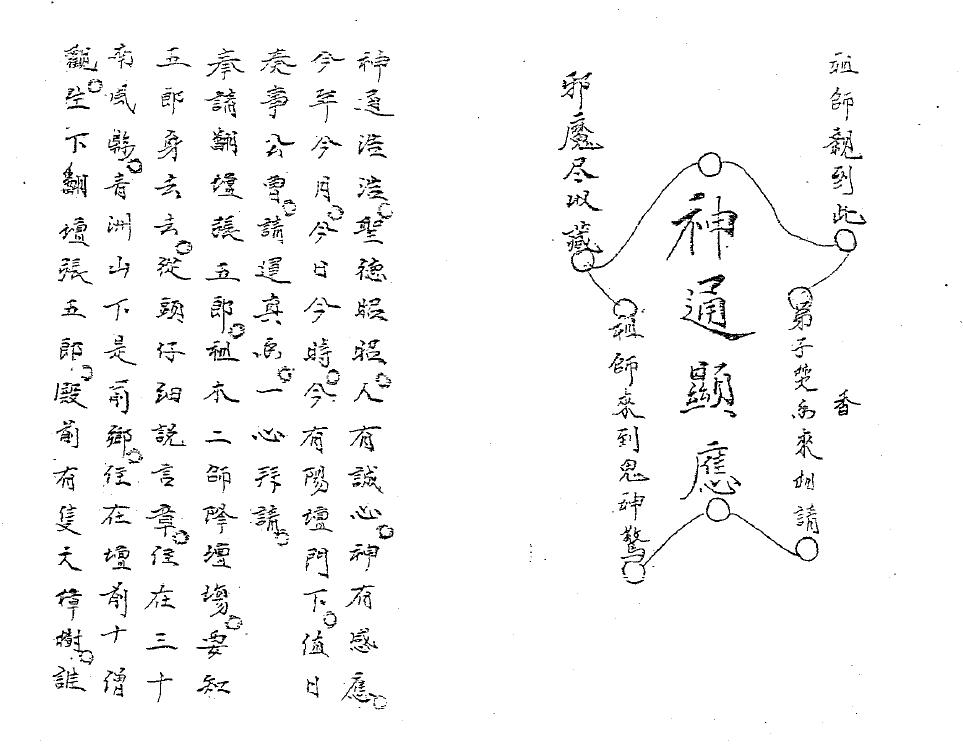 祖師親到此
香
弟子焚香來相請
神通顯應
祖師來到鬼神驚
邪魔尽收藏
神通浩浩聖德昭昭人有誠心神有感應
今年今月今日今時今有陽壇門下值日
奏事公曹請運真香一心拜請
奉請翻壇張五郎祖本二師降壇場要知
五郎身去去從頭仔細説言章住在三十
南風縣青洲山下是前鄉住在壇前十僧
觀坐下翻壇張五郎殿前有隻大樟樹誰